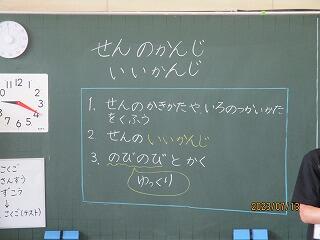 せんのかんじ
いいかんじ
1. せんのかきかたや、いろのつかいかた
をくふう
2. せんの いいかんじ
3. のびのびとかく
ゆっくり
こくご
さんすう
ずこう
↓
こくご(テスト)
12
1
2
3
4
5
6
7
8
9
10
11
2023/07/13